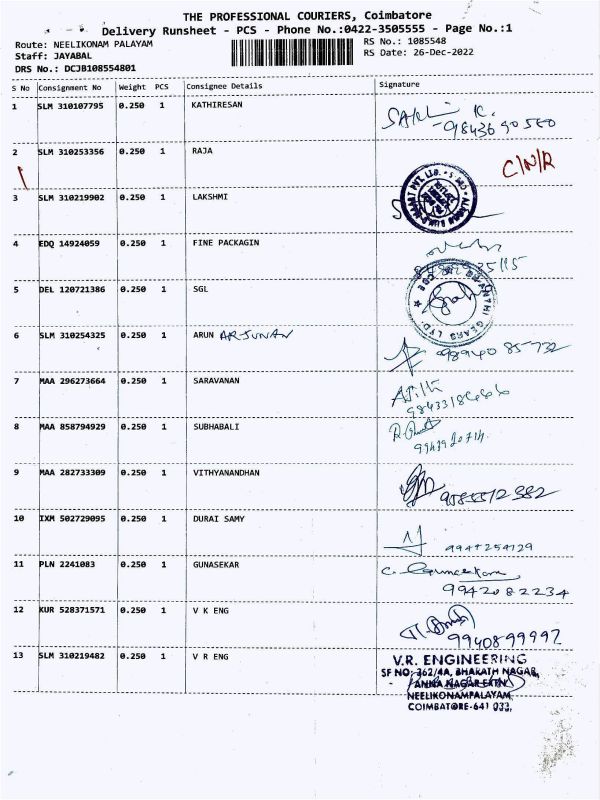 THE PROFESSIONAL COURIERS, Coimbatore
Delivery Runsheet - PCS - Phone No.:0422-3505555 - Page No.:1
Route: NEELIKONAM PALAYAM
RS No.: 1085548
Staff: JAYABAL
RS Date: 26-Dec-2022
DRS No.: DCJB108554801
S No Consignment No Weight PCS Consignee Details Signature
1 SLM 310107795 0.250 1 KATHIRESAN
K.
2 SLM 310253356 0.250 1 RAJA
C/N/R
3 SLM 310219902 0.250 1 LAKSHMI
4 EDQ 14924059 0.250 1 FINE PACKAGIN
5 DEL 120721386 0.250 1 SGL
SHANTHI GEARS LTD.
6 SLM 310254325 0.250 1 ARUN ARJUNAN
98940 85732
7 MAA 296273664 0.250 1 SARAVANAN
8 MAA 858794929 0.250 1 SUBHABALI
9 MAA 282733309 0.250 1 VITHYANANDHAN
10 IXM 502729095 0.250 1 DURAI SAMY
11 PLN 2241083 0.250 1 GUNASEKAR
9942082234
12 KUR 528371571 0.250 1 V K ENG
9940899992
13 SLM 310219482 0.250 1 V R ENG
V.R. ENGINEERING
SF NO: 362/4A, BHARATH NAGAR,
ANNA NAGAR EXTN
NEELIKONAMPALAYAM,
COIMBATORE-641 033.